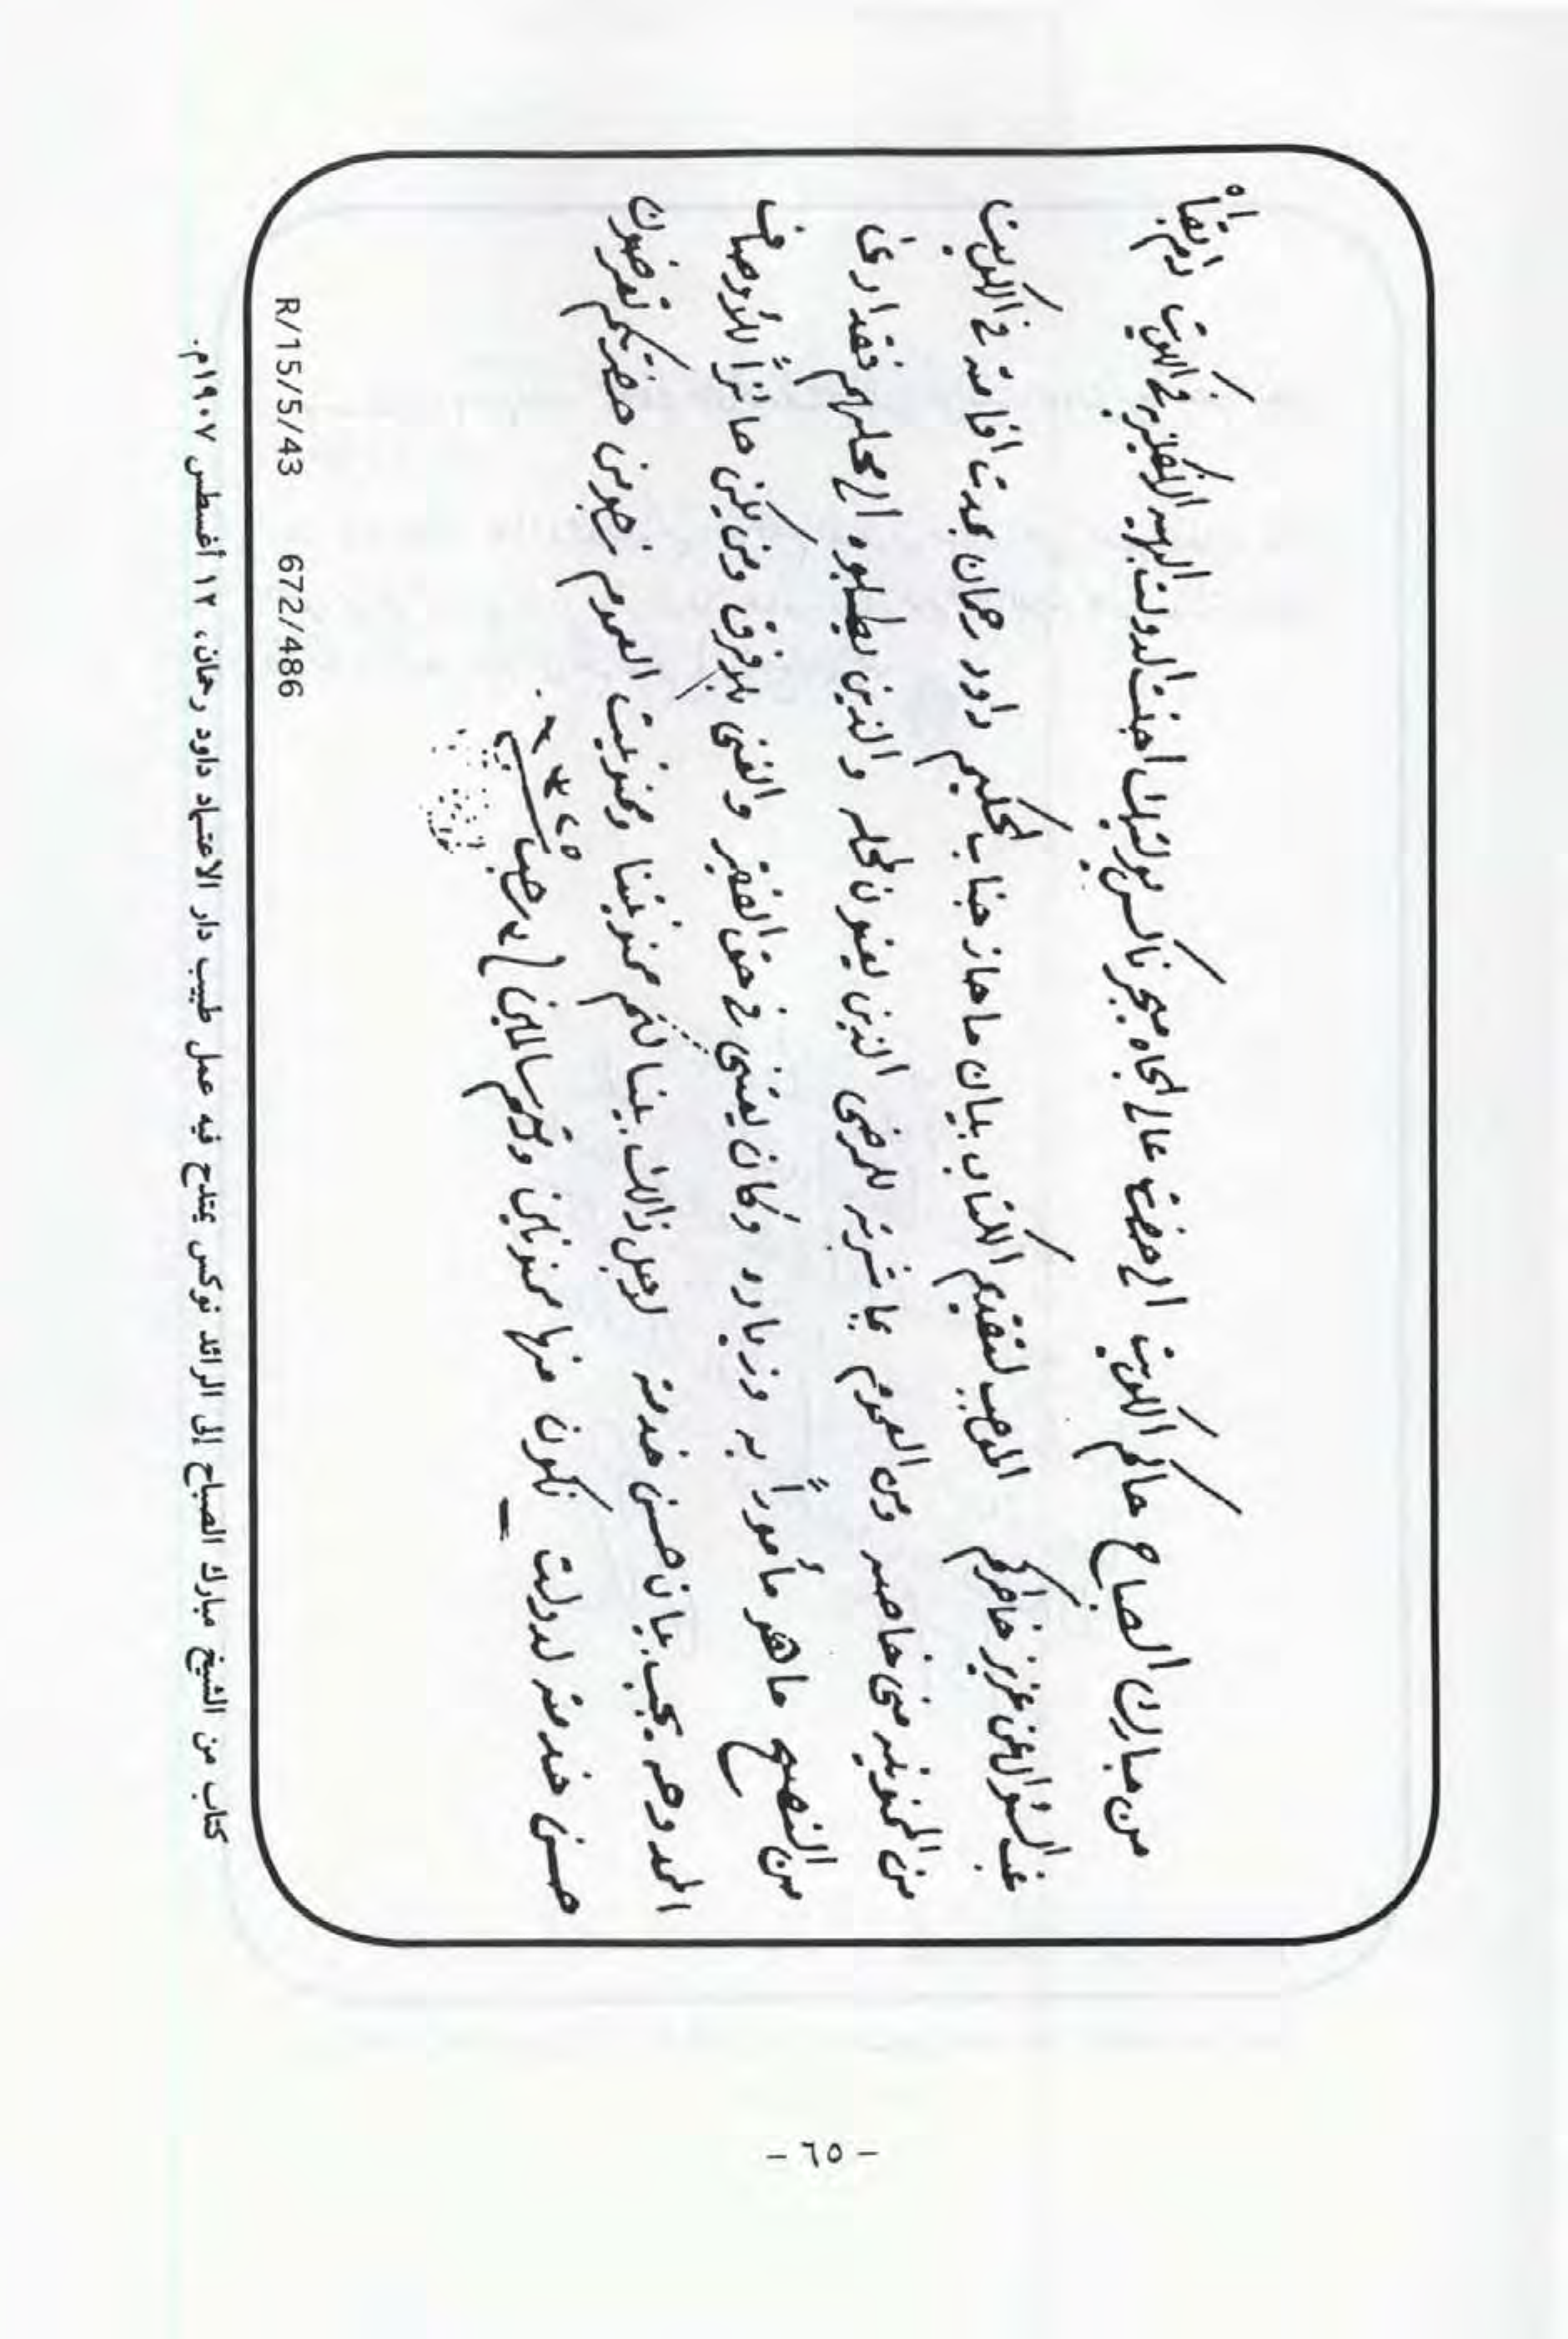 من مبارك الصباح حاكم الكويت الى حضرت عالي الجاه ميجر ناكس بولتيكل اجنت الدولت البهيه الانقليزيه في الكويت دام ابقاه
غب السؤال عن عزيز خاطركم الموجب لتقديم الكتاب بيان ما حاز جناب الحكيم داود رحمان بمدت اقامته في الكويت
من الممنونيه مني خاصه ومن العموم بمباشرته للمرضى الذين يعنون لمحله والذين يطلبوه الى محلهم فقد ارى
من النصح ما هو مأموراً به وزياده وكان يعتني في حق الفقير والغني بلا فرق ومن يكن حائزاً للاوصاف
الممدوحه يجب بيان حسن خدمته لاجل ذالك بينا لكم ممنونيتنا وممنونيت العموم نرجو من حضرتكم تعرضون
حسن خدمته لدولت نكون منها ممنونين ودمتم سالمين ٤ رجب ١٣٢٥
R/15/5/43 672/486
كتاب من الشيخ مبارك الصباح إلى الرائد نوكس يمتدح فيه عمل طبيب دار الاعتماد داود رحمان، ١٣ أغسطس ١٩٠٧م.
- ٦٥ -